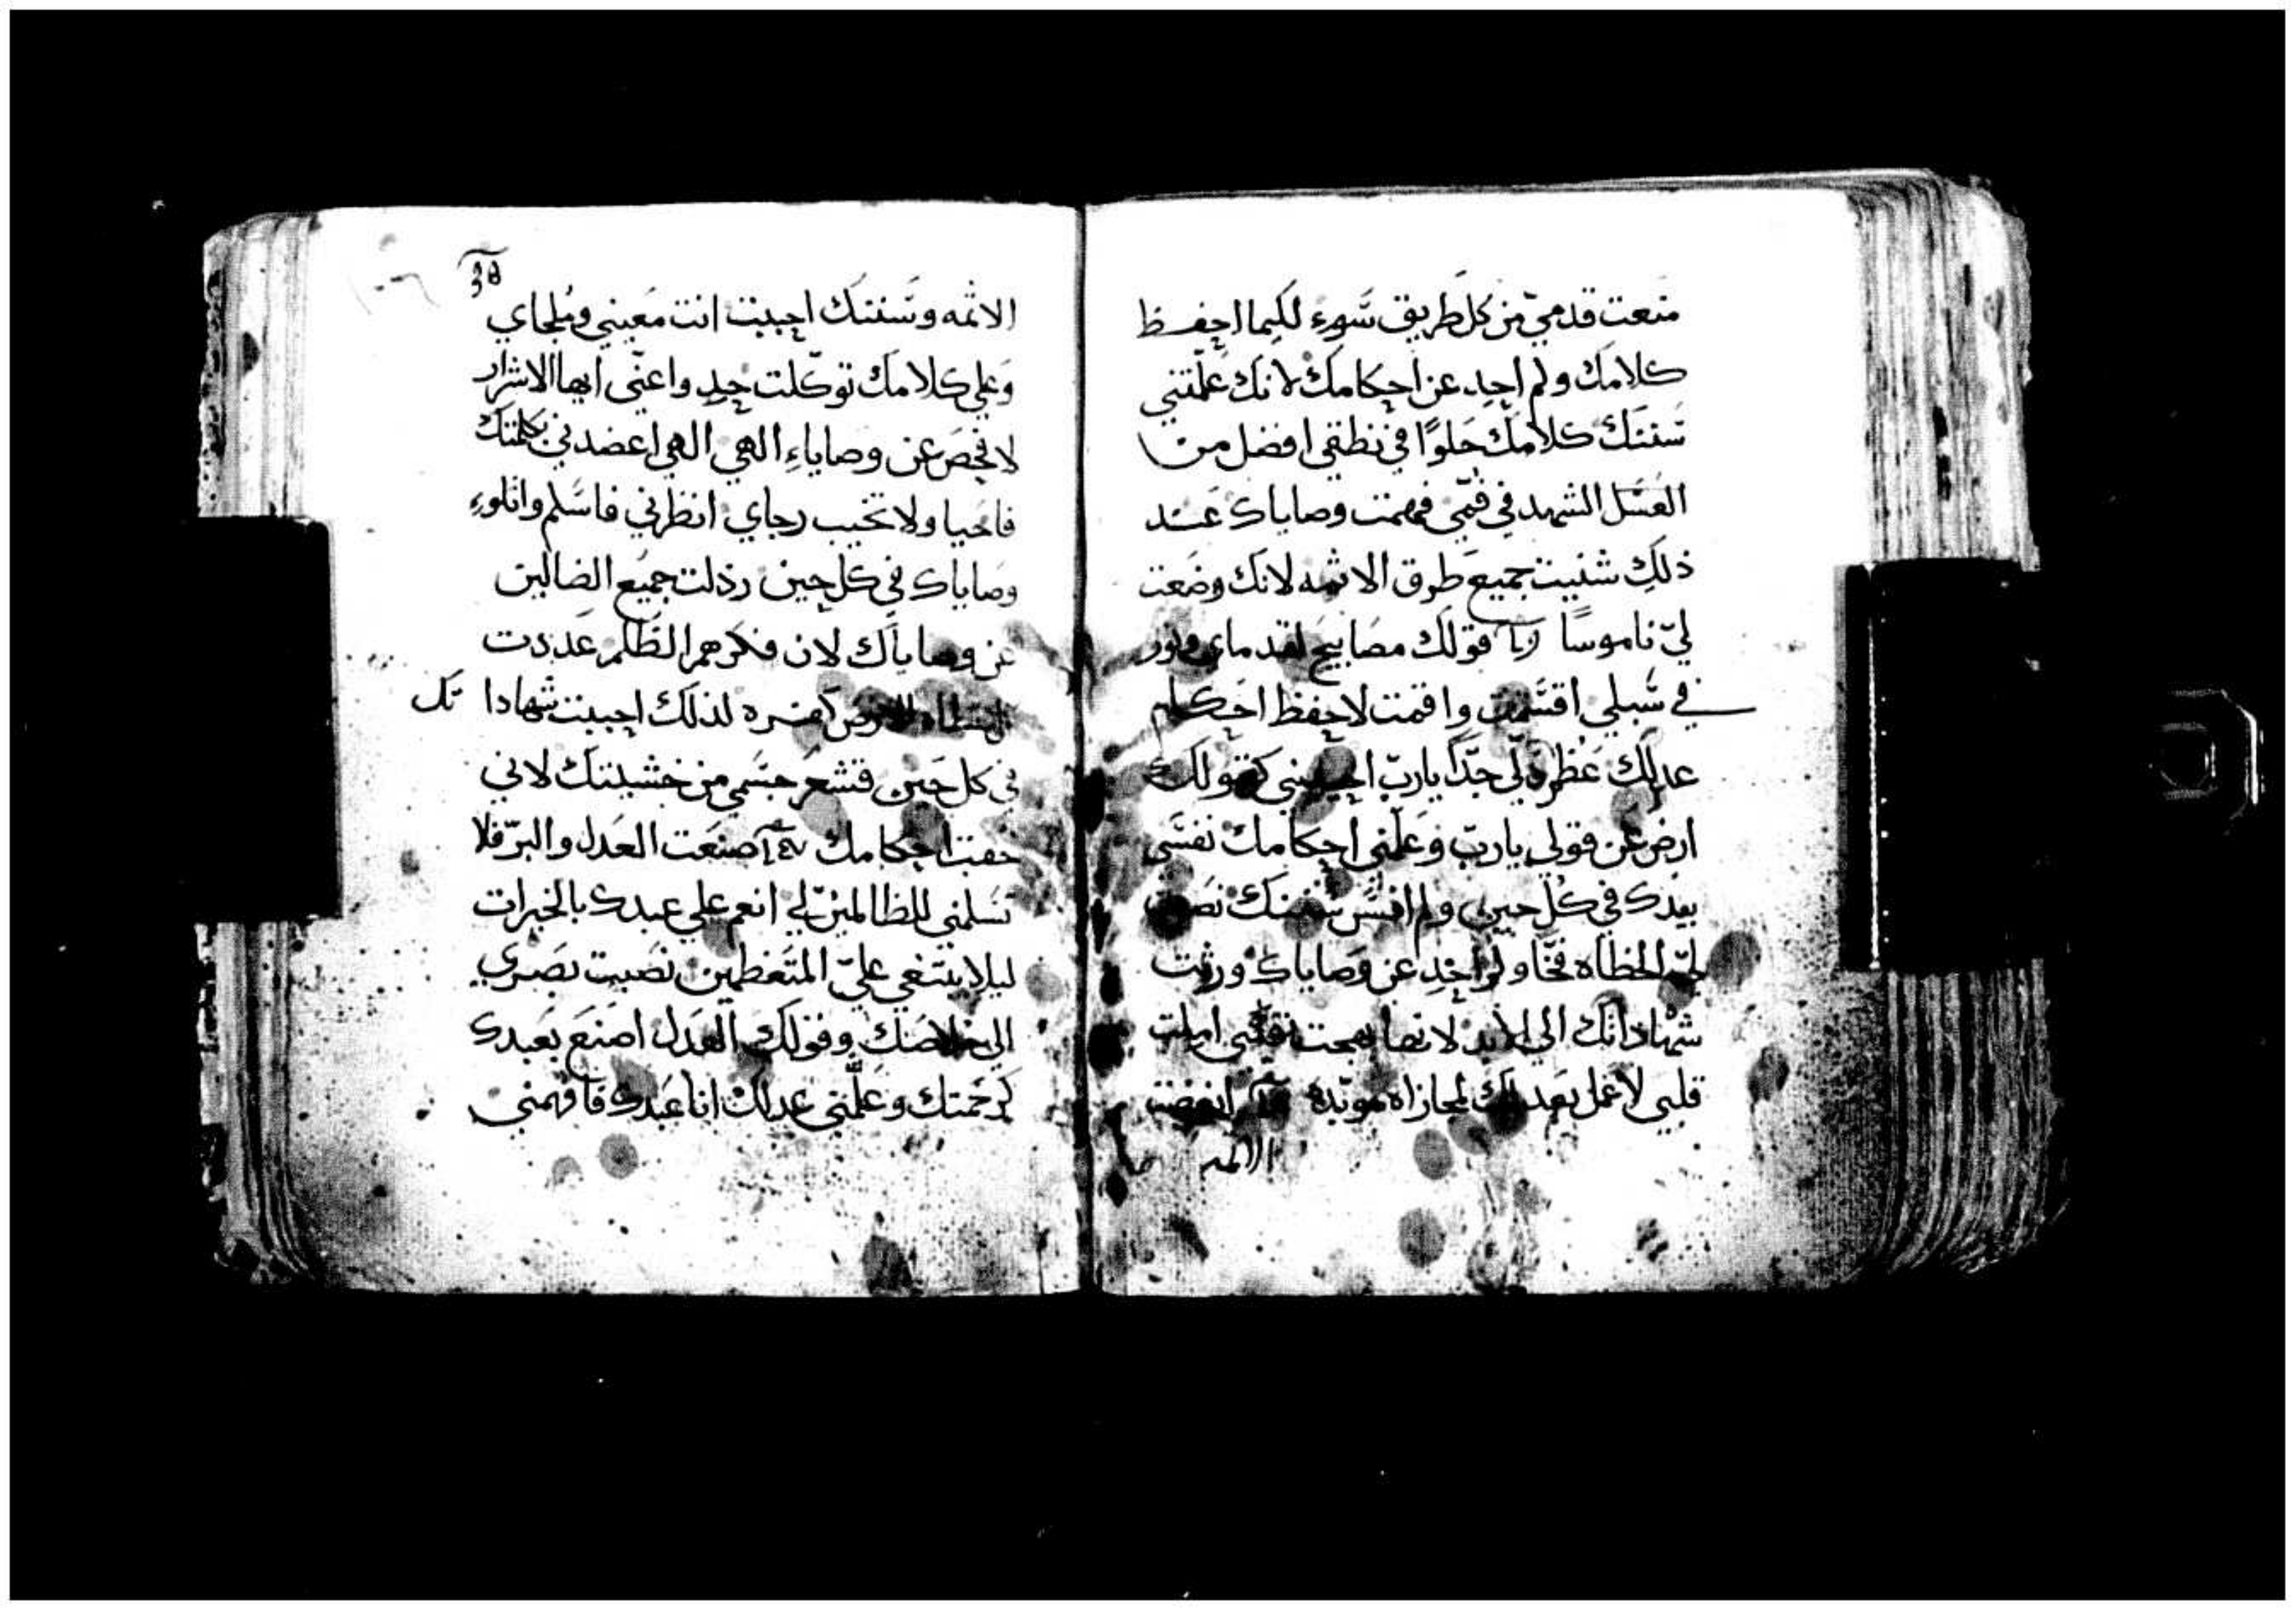 منعت قدمي من كل طريق سوء لكيما احفظ
كلامك ولم احد عن احكامك لانك علمتني
سننك كلامك حلوًا في نطقي افضل من
العسل الشهد في فمي فهمت وصاياك عند
ذلك شنيت جميع طرق الاثمه لانك وضعت
لي ناموسًا قولك مصابيح لقدماي ونور
في سبلي اقسمت واقمت لاحفظ احكام
عدلك جدًا يارب احييني كقولك
ارض عن قولي يارب وعلمني احكامك نفسي
بيدك في كل حين ولم سننك نصب
لي الخطاه فخًا ولم احد عن وصاياك ورثت
شهاداتك الي الابد لانها بهجت قلبي املت
قلبي لاعمل بعدلك لمجازاه موبده ابغضت
الاثمه
الاثمه وسننك احببت انت معيني وملجاي
وعلي كلامك توكلت حيد واعني ايها الاشرار
لافحص عن وصاياء الهي الهي اعضدني بكلمتك
فاحيا ولا تخيب رجاي انظرني فاسلم واتلوء
وصاياك في كل حين رذلت جميع الضالين
عن وصاياك لان فكرهم الظلم عددت
خطاه الارض لذلك احببت شهادا تك
في كل حين قتشعر جسمي من خشيتك لاني
خفت احكامك صنعت العدل والبر فلا
تسلمني للظالمين لي انعم علي عبدك بالخيرات
ليلا يبتغي علي المتعظمين نصبت بصري
الي خلاصك وقولك العدل اصنع بعبدك
كرحمتك وعلمني عدلك انا عبدك فافهمني